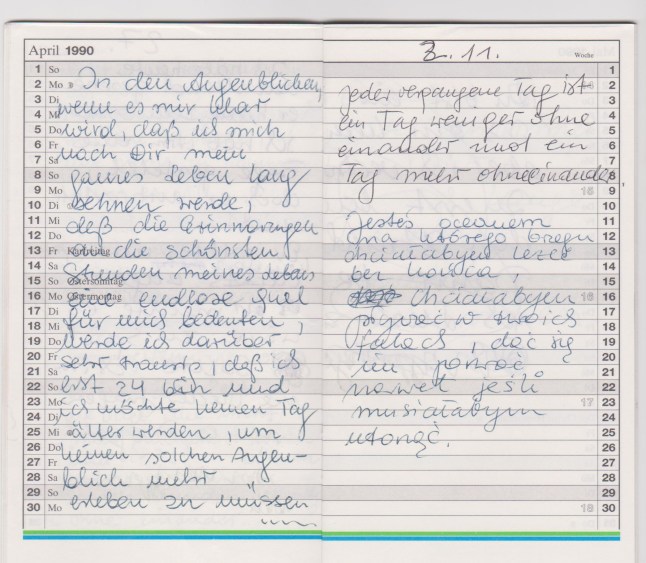 April 1990
In den Augenblicken,
wenn es mir klar
wird, daß ich mich
nach Dir mein
ganzes Leben lang
sehnen werde,
daß die Erinnerungen
an die schönsten
Stunden meines Lebens
eine endlose Qual
für mich bedeuten,
werde ich darüber
sehr traurig, daß ich
erst 24 bin und
ich möchte keinen Tag
älter werden, um
keinen solchen Augen-
blick mehr
erleben zu müssen
1 So
2 Mo
3 Di
4 Mi
5 Do
6 Fr
7 Sa
8 So
9 Mo
10 Di
11 Mi
12 Do
13 Fr Karfreitag
14 Sa
15 So Ostersonntag
16 Mo Ostermontag
17 Di
18 Mi
19 Do
20 Fr
21 Sa
22 So
23 Mo
24 Di
25 Mi
26 Do
27 Fr
28 Sa
29 So
30 Mo
2. 11.
Woche
jeder vergangene Tag ist
ein Tag weniger ohne
einander und ein
Tag mehr ohneeinander.
Jesteś oceanem
na którego brzegu
chciałabym leżeć
bez końca,
Chciałabym
pływać w twoich
falach, dać się
im porwać
nawet jeśli
musiałabym
utonąć.
1
2
3
4
5
6
7
8
9
10
11
12
13
14
15
16
17
18
19
20
21
22
23
24
25
26
27
28
29
30